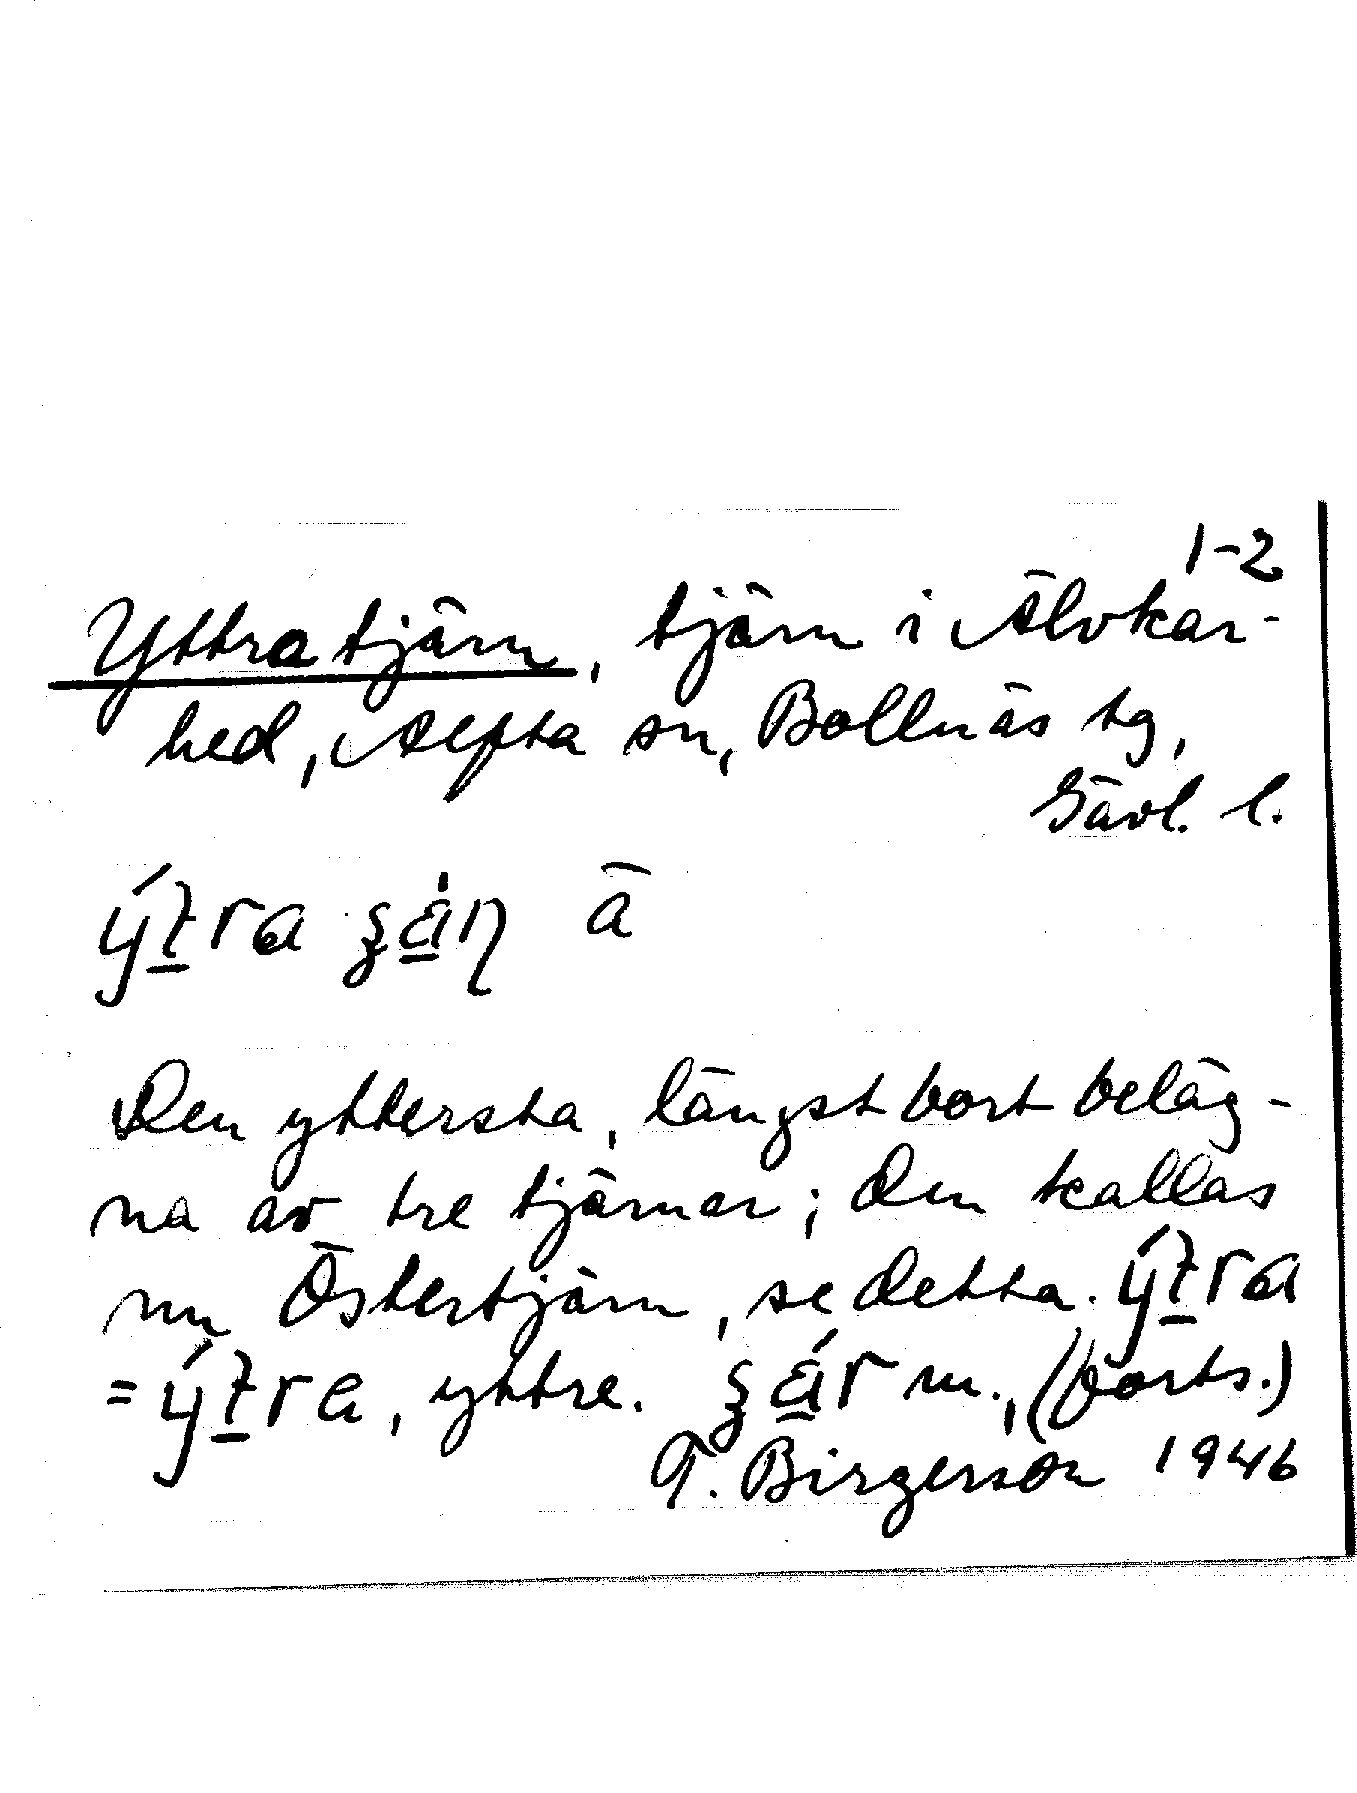 1-2
Yttratjärn, tjärn i Älvkar-
hed, Alfta sn, Bollnäs tg,
Gävl. l.
ā
Den yttersta, längst bort beläg-
na av tre tjärnar; den kallas
nu Östertjärn, se detta.
yttre. m., (forts.)
T. Birgerson 1946